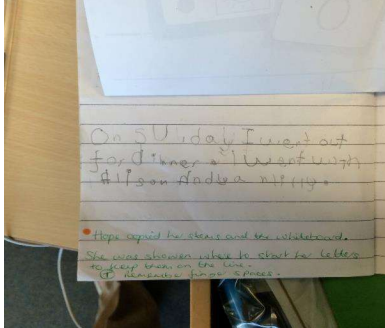 On SUNday I went out
for dinner. I went with
Alison Andya milly.
Hope copied her story and the whiteboard.
She was shown where to start her letters
to keep them on the line.
remember finger spaces.